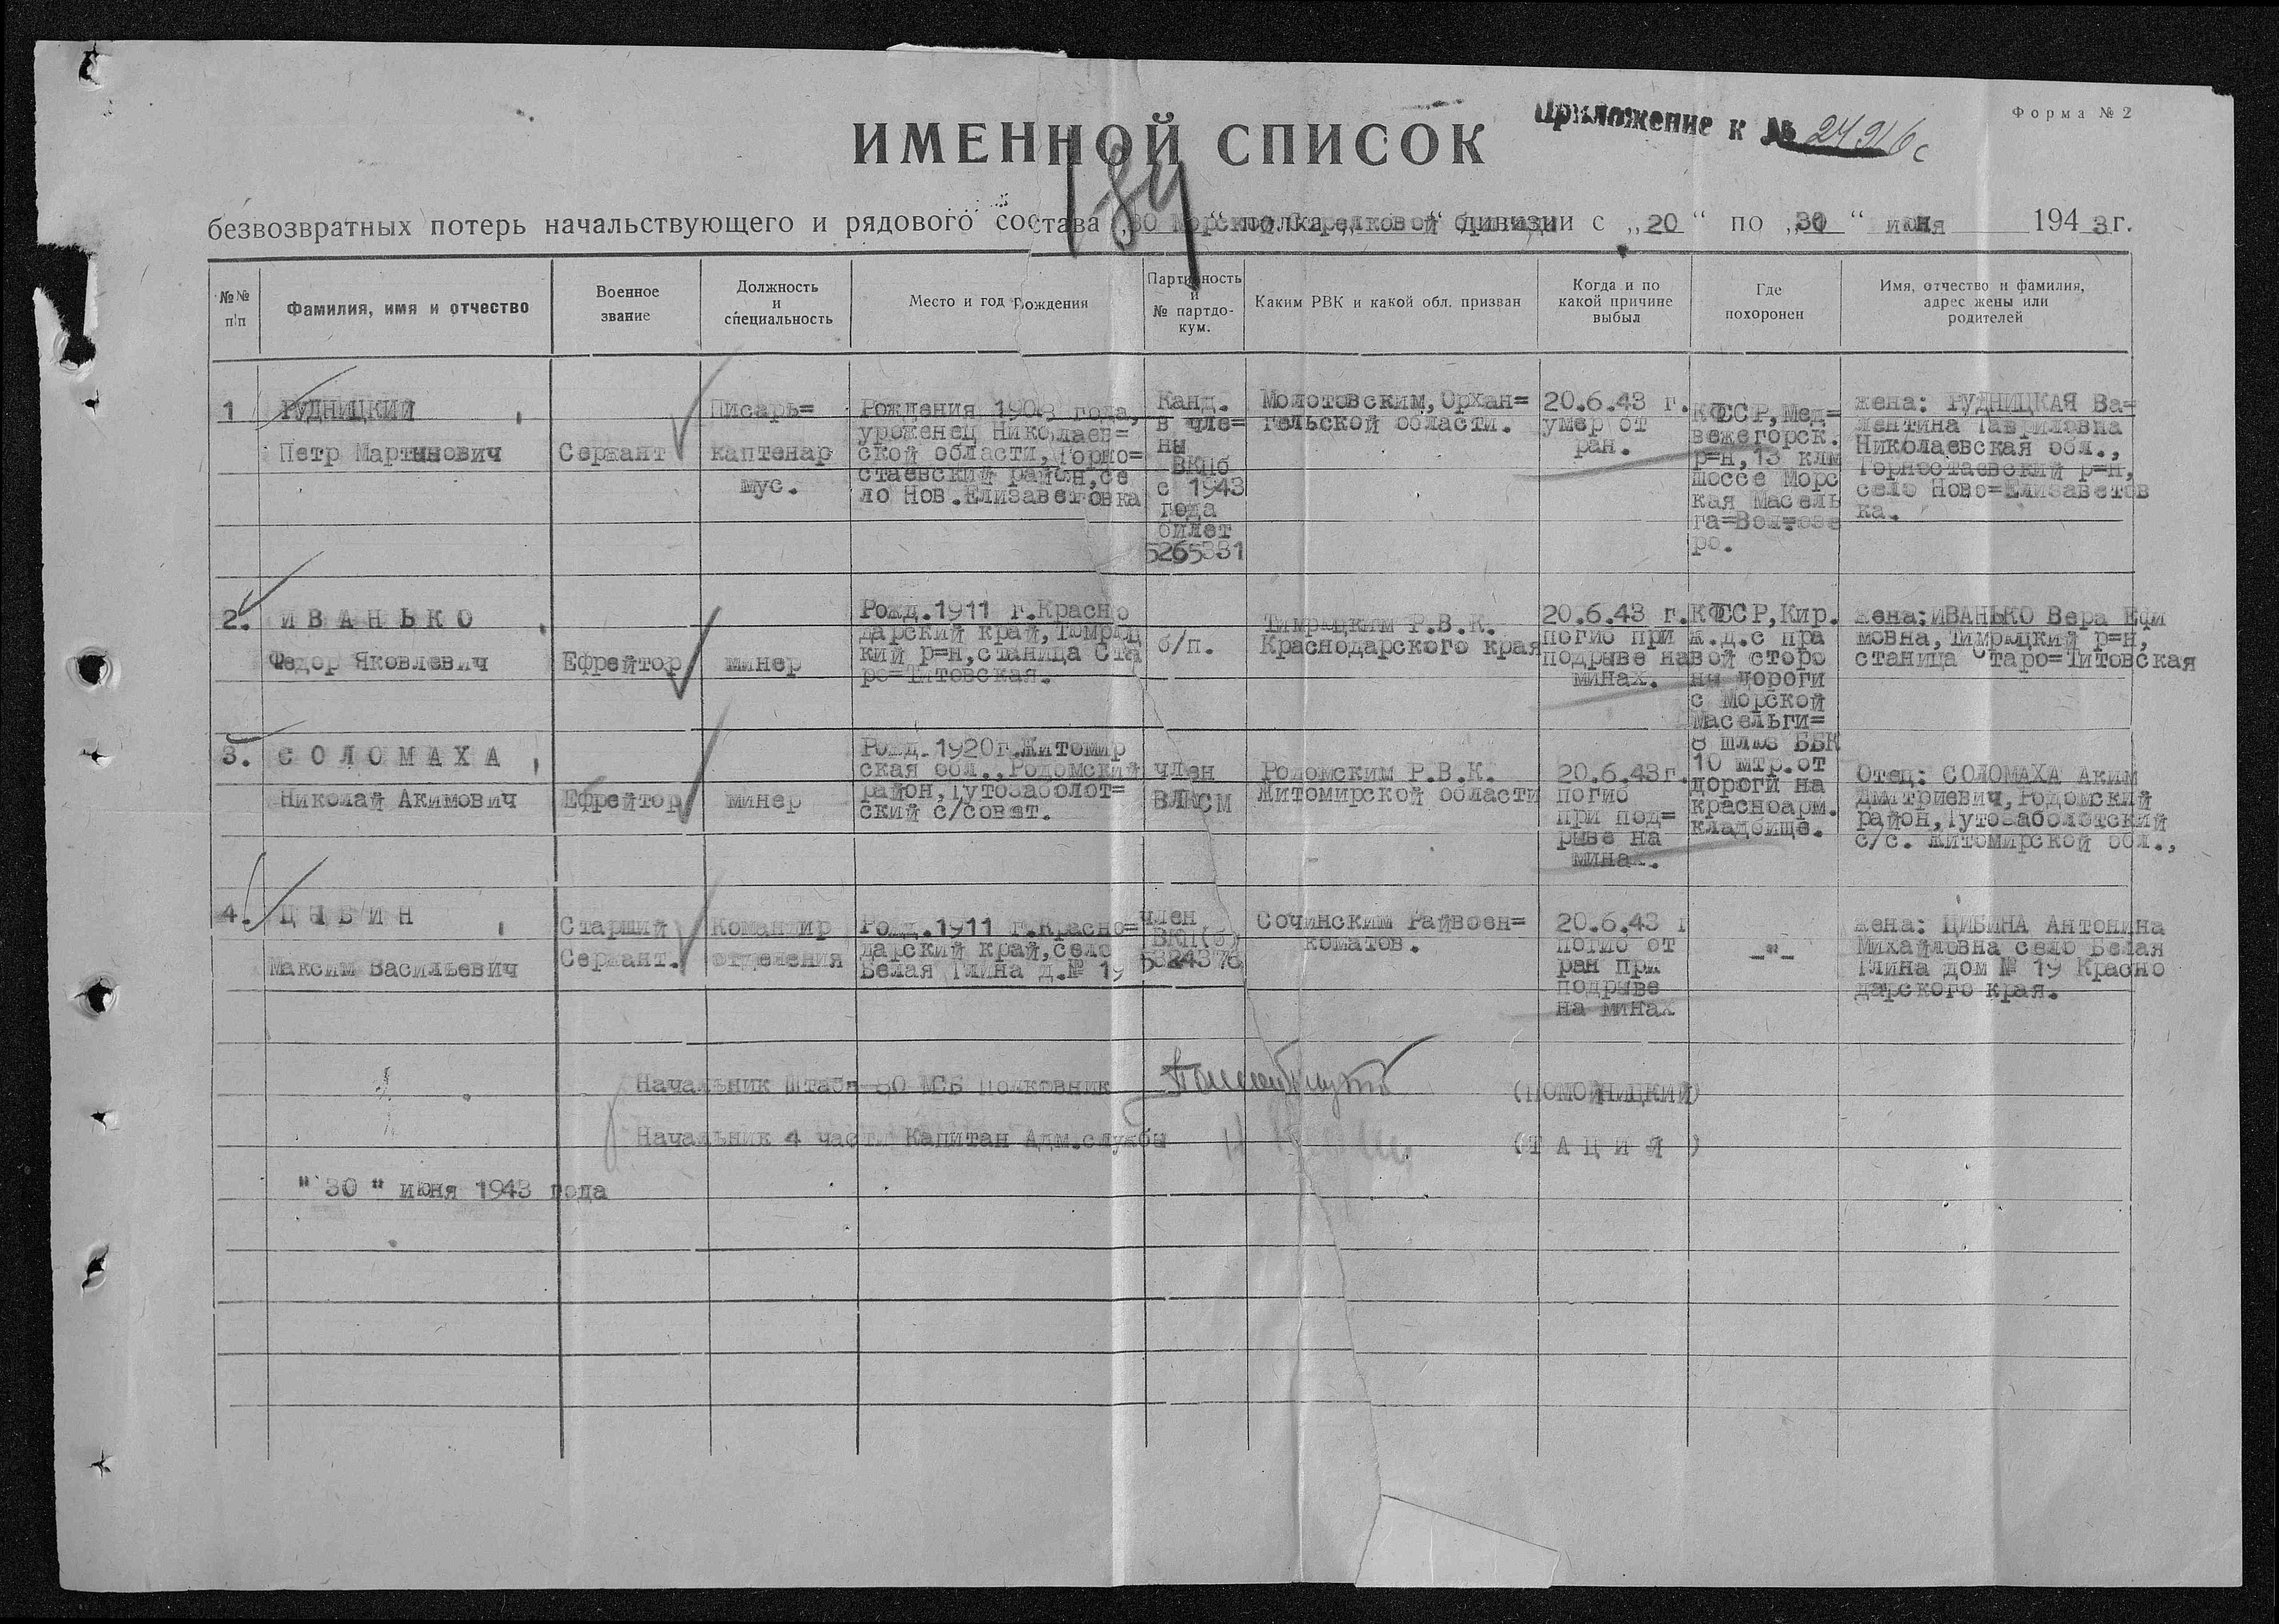 Форма № 2
Приложение к № 24916с
ИМЕННОЙ СПИСОК
184
безвозвратных потерь начальствующего и рядового состава 80 Морской Стрелковой бригады с „20“ по „30“ июня 1943 г.
№№ п/п
Фамилия, имя и отчество
Военное звание
Должность и специальность
Место и год рождения
Партийность и № партдокум.
Каким РВК и какой обл. призван
Когда и по какой причине выбыл
Где похоронен
Имя, отчество и фамилия, адрес жены или родителей
1
РУДНИЦКИЙ,
Петр Мартынович
Сержант
Писарь=
каптенар
мус.
Рождения 1908 года,
уроженец Николаев=
ской области, Горно=
стаевский район, се
ло Нов.Елизаветовка
Канд.
в чле=
ны
ВКПб
с 1943
года
билет
5265331
Молотовским, Орхан=
гельской области.
20.6.43 г.
умер от
ран.
КФССР, Мед=
вежегорск.
р=н, 13 клм
шоссе Морс
кая Масель
га=Вол=озе
ро.
жена: РУДНИЦКАЯ Ва=
лентина Гавриловна
Николаевская обл.,
Горностаевский р=н,
село Ново=Елизаветов
ка.
2.
ИВАНЬКО,
Федор Яковлевич
Ефрейтор
минер
Рожд.1911 г.Красно
дарский край, Тёмрюц
кий р=н, станица Ста
ро=Титовская.
б/п.
Тимрюцким Р.В.К.
Краснодарского края
20.6.43 г.
погиб при
подрыве на
минах.
КФССР, Кир.
ж.д.с пра
вой сторо
ны дороги
с Морской
Масельги=
8 шлюз ББК
10 мтр.от
дороги на
красноарм.
кладбище.
жена: ИВАНЬКО Вера Ефи
мовна, Тимрюцкий р=н,
станица Старо=Титовская
3.
СОЛОМАХА,
Николай Акимович
Ефрейтор
минер
Рожд.1920г.Житомир
ская обл., Родомский
район, Гутозаболот=
ский с/совет.
член
ВЛКСМ
Родомским Р.В.К.
Житомирской области
20.6.43г.
погиб
при под=
рыве на
минах.
Отец: СОЛОМАХА Аким
Дмитриевич, Родомский
район, Гутозаболотский
с/с. Житомирской обл.,
4.
ЦЫБИН,
Максим Васильевич
Старший
Сержант.
Командир
отделения
Рожд.1911 г.Красно=
дарский край, село
Белая Глина д.№ 19
член
ВКП(б)
5324378
Сочинским Райвоен=
коматов.
20.6.43 г
погиб от
ран при
подрыве
на минах
_"_
жена: ЦИБИНА Антонина
Михайловна село Белая
Глина дом № 19 Красно
дарского края.
Начальник Штаба 80 МСБ Полковник (ПОМОЙНИЦКИЙ)
Начальник 4 части Капитан Адм.службы (ТАЦИЯ)
"30" июня 1943 года